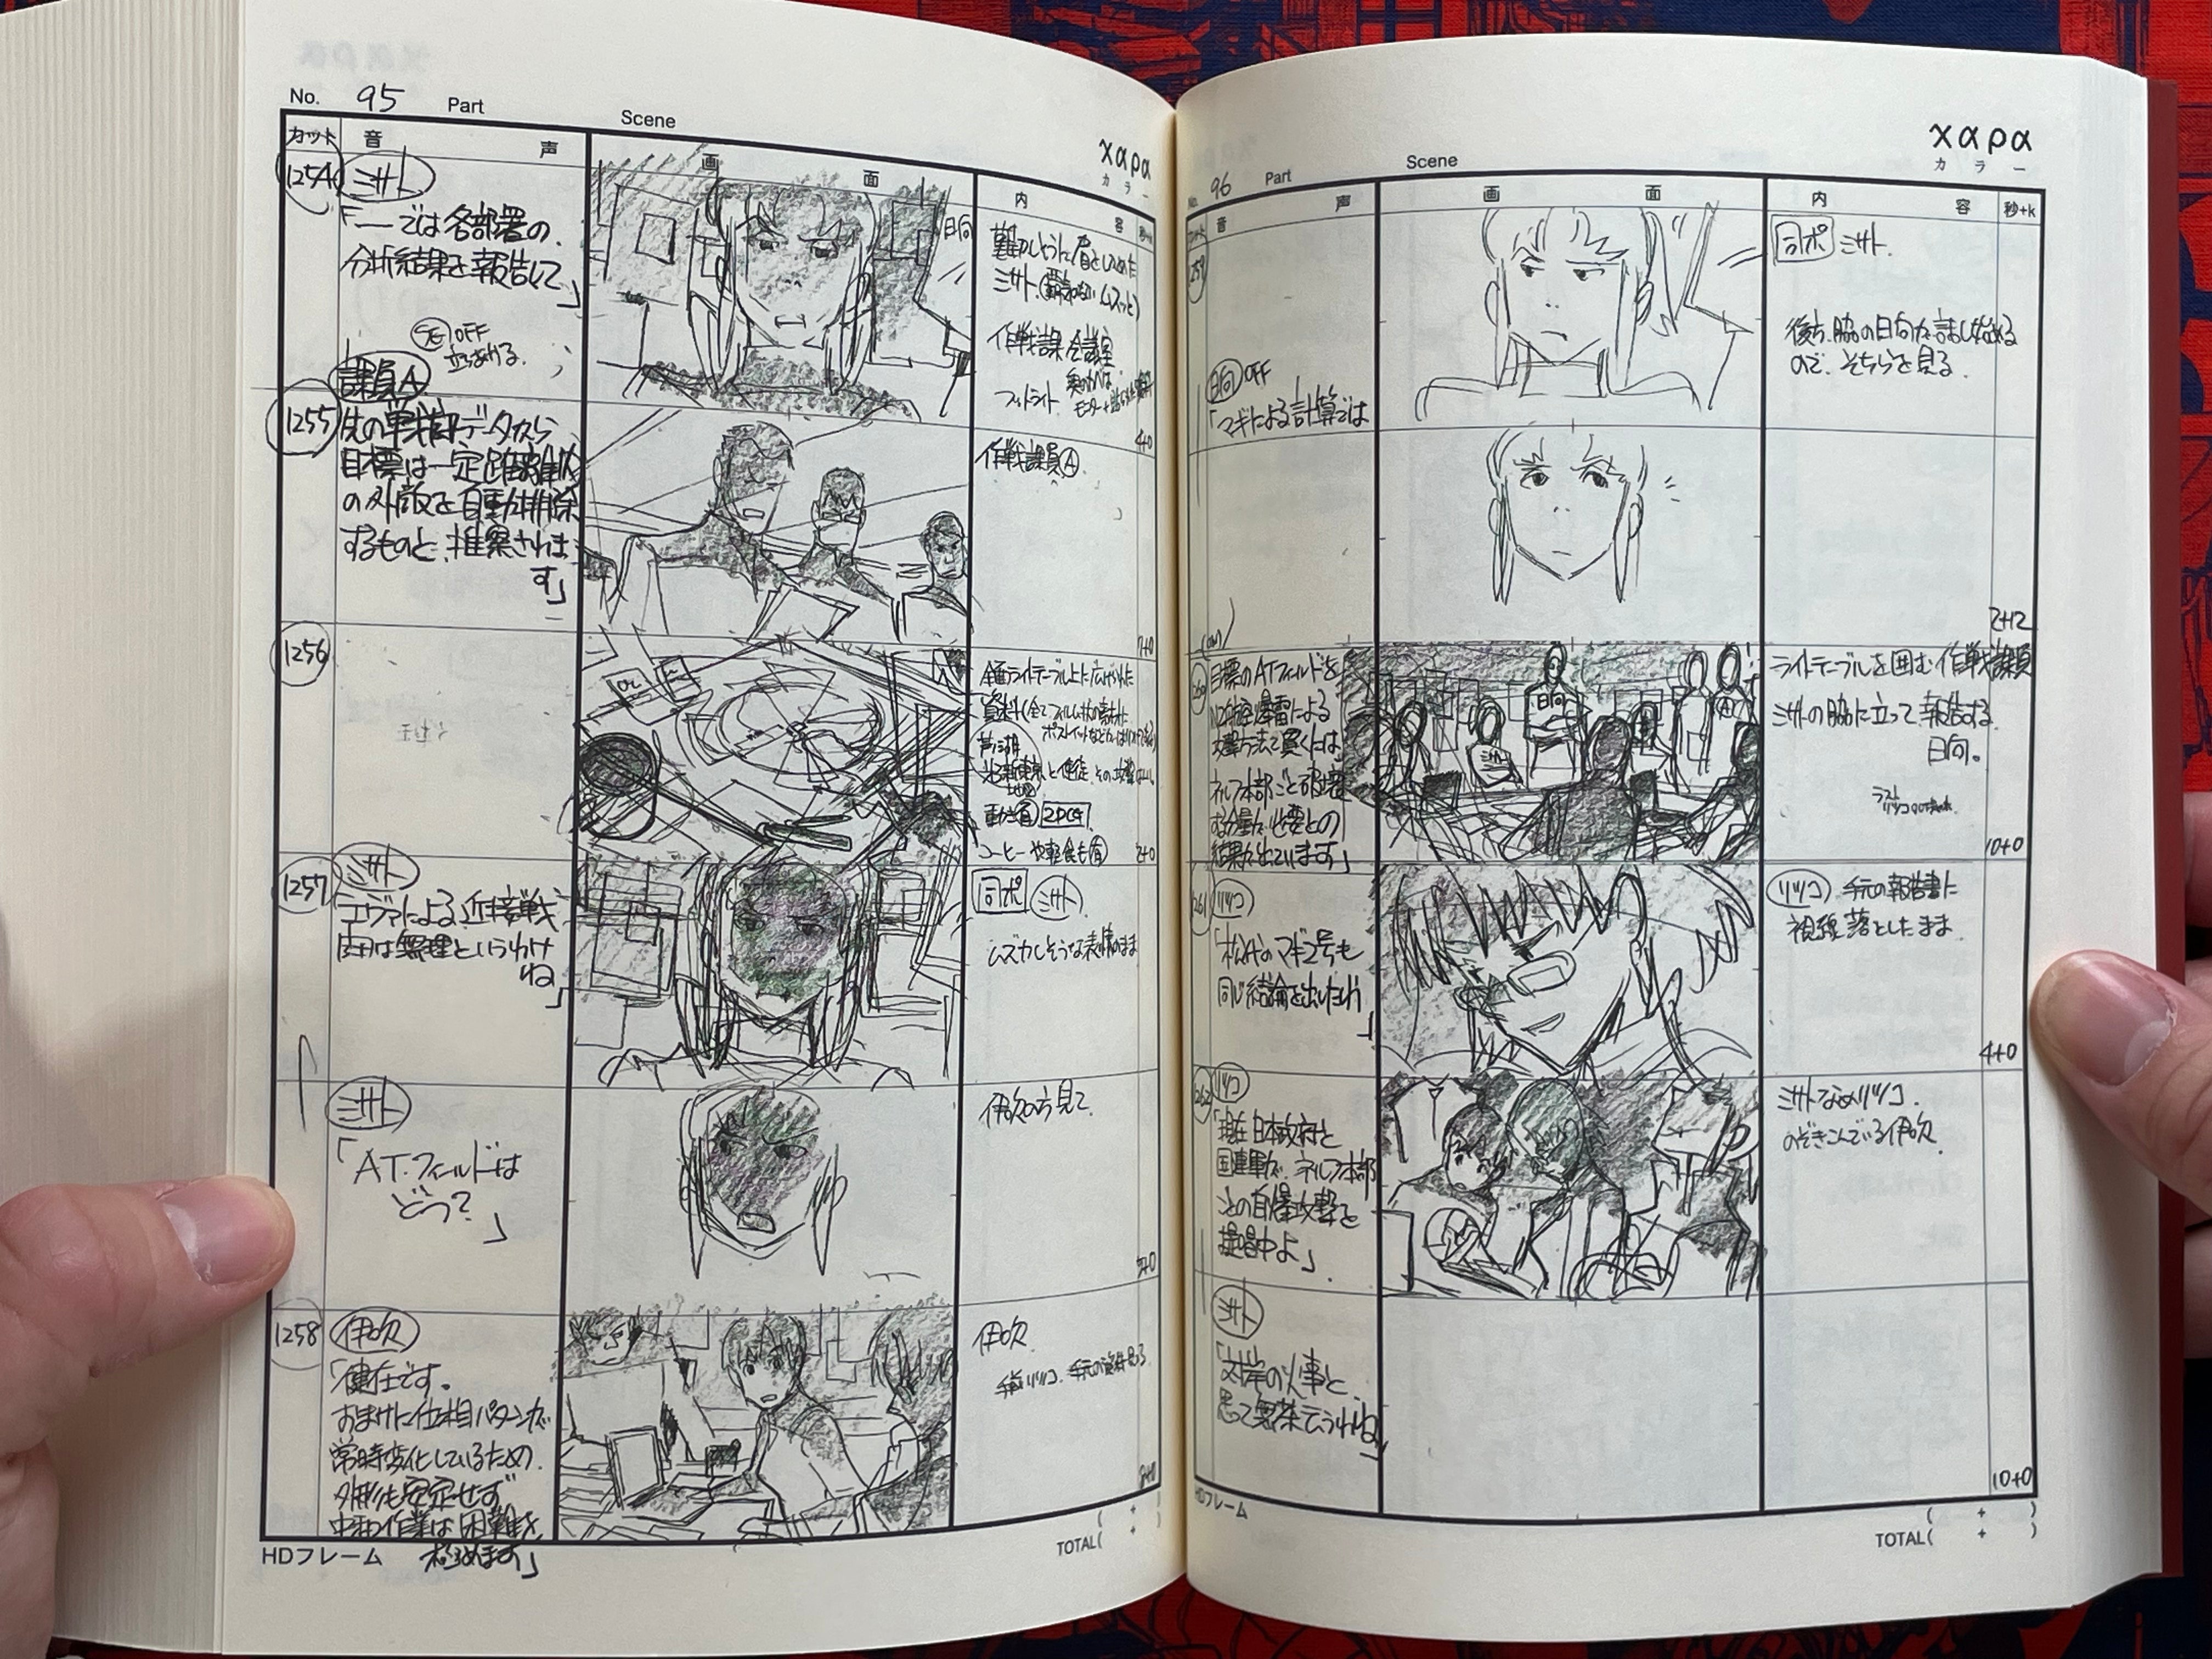 No. 95 Part Scene
χαρα
カラー
カット 音 声 画 面 内 容 秒+k
1254 ミサト
「―では各部署の
分析結果を報告して」
OFF
立ちあがる。
日向
ミサト。
作戦課 会議室
フットライト
4+0
課員A
1255 先の戦闘データから
目標は一定距離
の外敵を自動排除
するものと、推察されま
す」
作戦課員A
7+0
1256
全面ライトテーブル上に広げられた
資料
芦ノ湖
2PCG
コーヒーや軽食も有
2+0
1257 ミサト
「エヴァによる近接戦
闘は無理というわけ
ね」
同ポ ミサト
ムズカしそうな表情のまま
ミサト
「A.T.フィールドは
どう?」
伊吹の方見て
1258 伊吹
「健在です。
おまけに位相パターンが
常時変化しているため
外形も安定せず
中和作業は困難を
極めます」
伊吹
手前リツコ、手元の資料見てる
8+0
HDフレーム
TOTAL( + )
No. 96 Part Scene
χαρα
カラー
カット 音 声 画 面 内 容 秒+k
日向 OFF
「マギによる計算では
同ポ ミサト。
後ち、脇の日向が話し始める
ので、そちらを見る。
2+12
1260 目標のATフィールドを
N2航空爆雷による
攻撃方法で貫くには
ネルフ本部ごと破壊
する分量が必要との
結果が出ています」
日向
ミサト
A
ライトテーブルを囲む作戦課員
ミサトの脇に立って報告する
日向。
10+0
1261 リツコ
「松代のマギ2号も
同じ結論を出したわ」
リツコ 手元の報告書に
視線落としたまま
4+0
1262 リツコ
「現在日本政府と
国連軍が、ネルフ本部
ごとの自爆攻撃を
提唱中よ」
ミサトなめリツコ。
のぞきこんでいる伊吹
ミサト
「対岸の火事と
思って無茶言うわね」
10+0
HDフレーム
TOTAL( + )